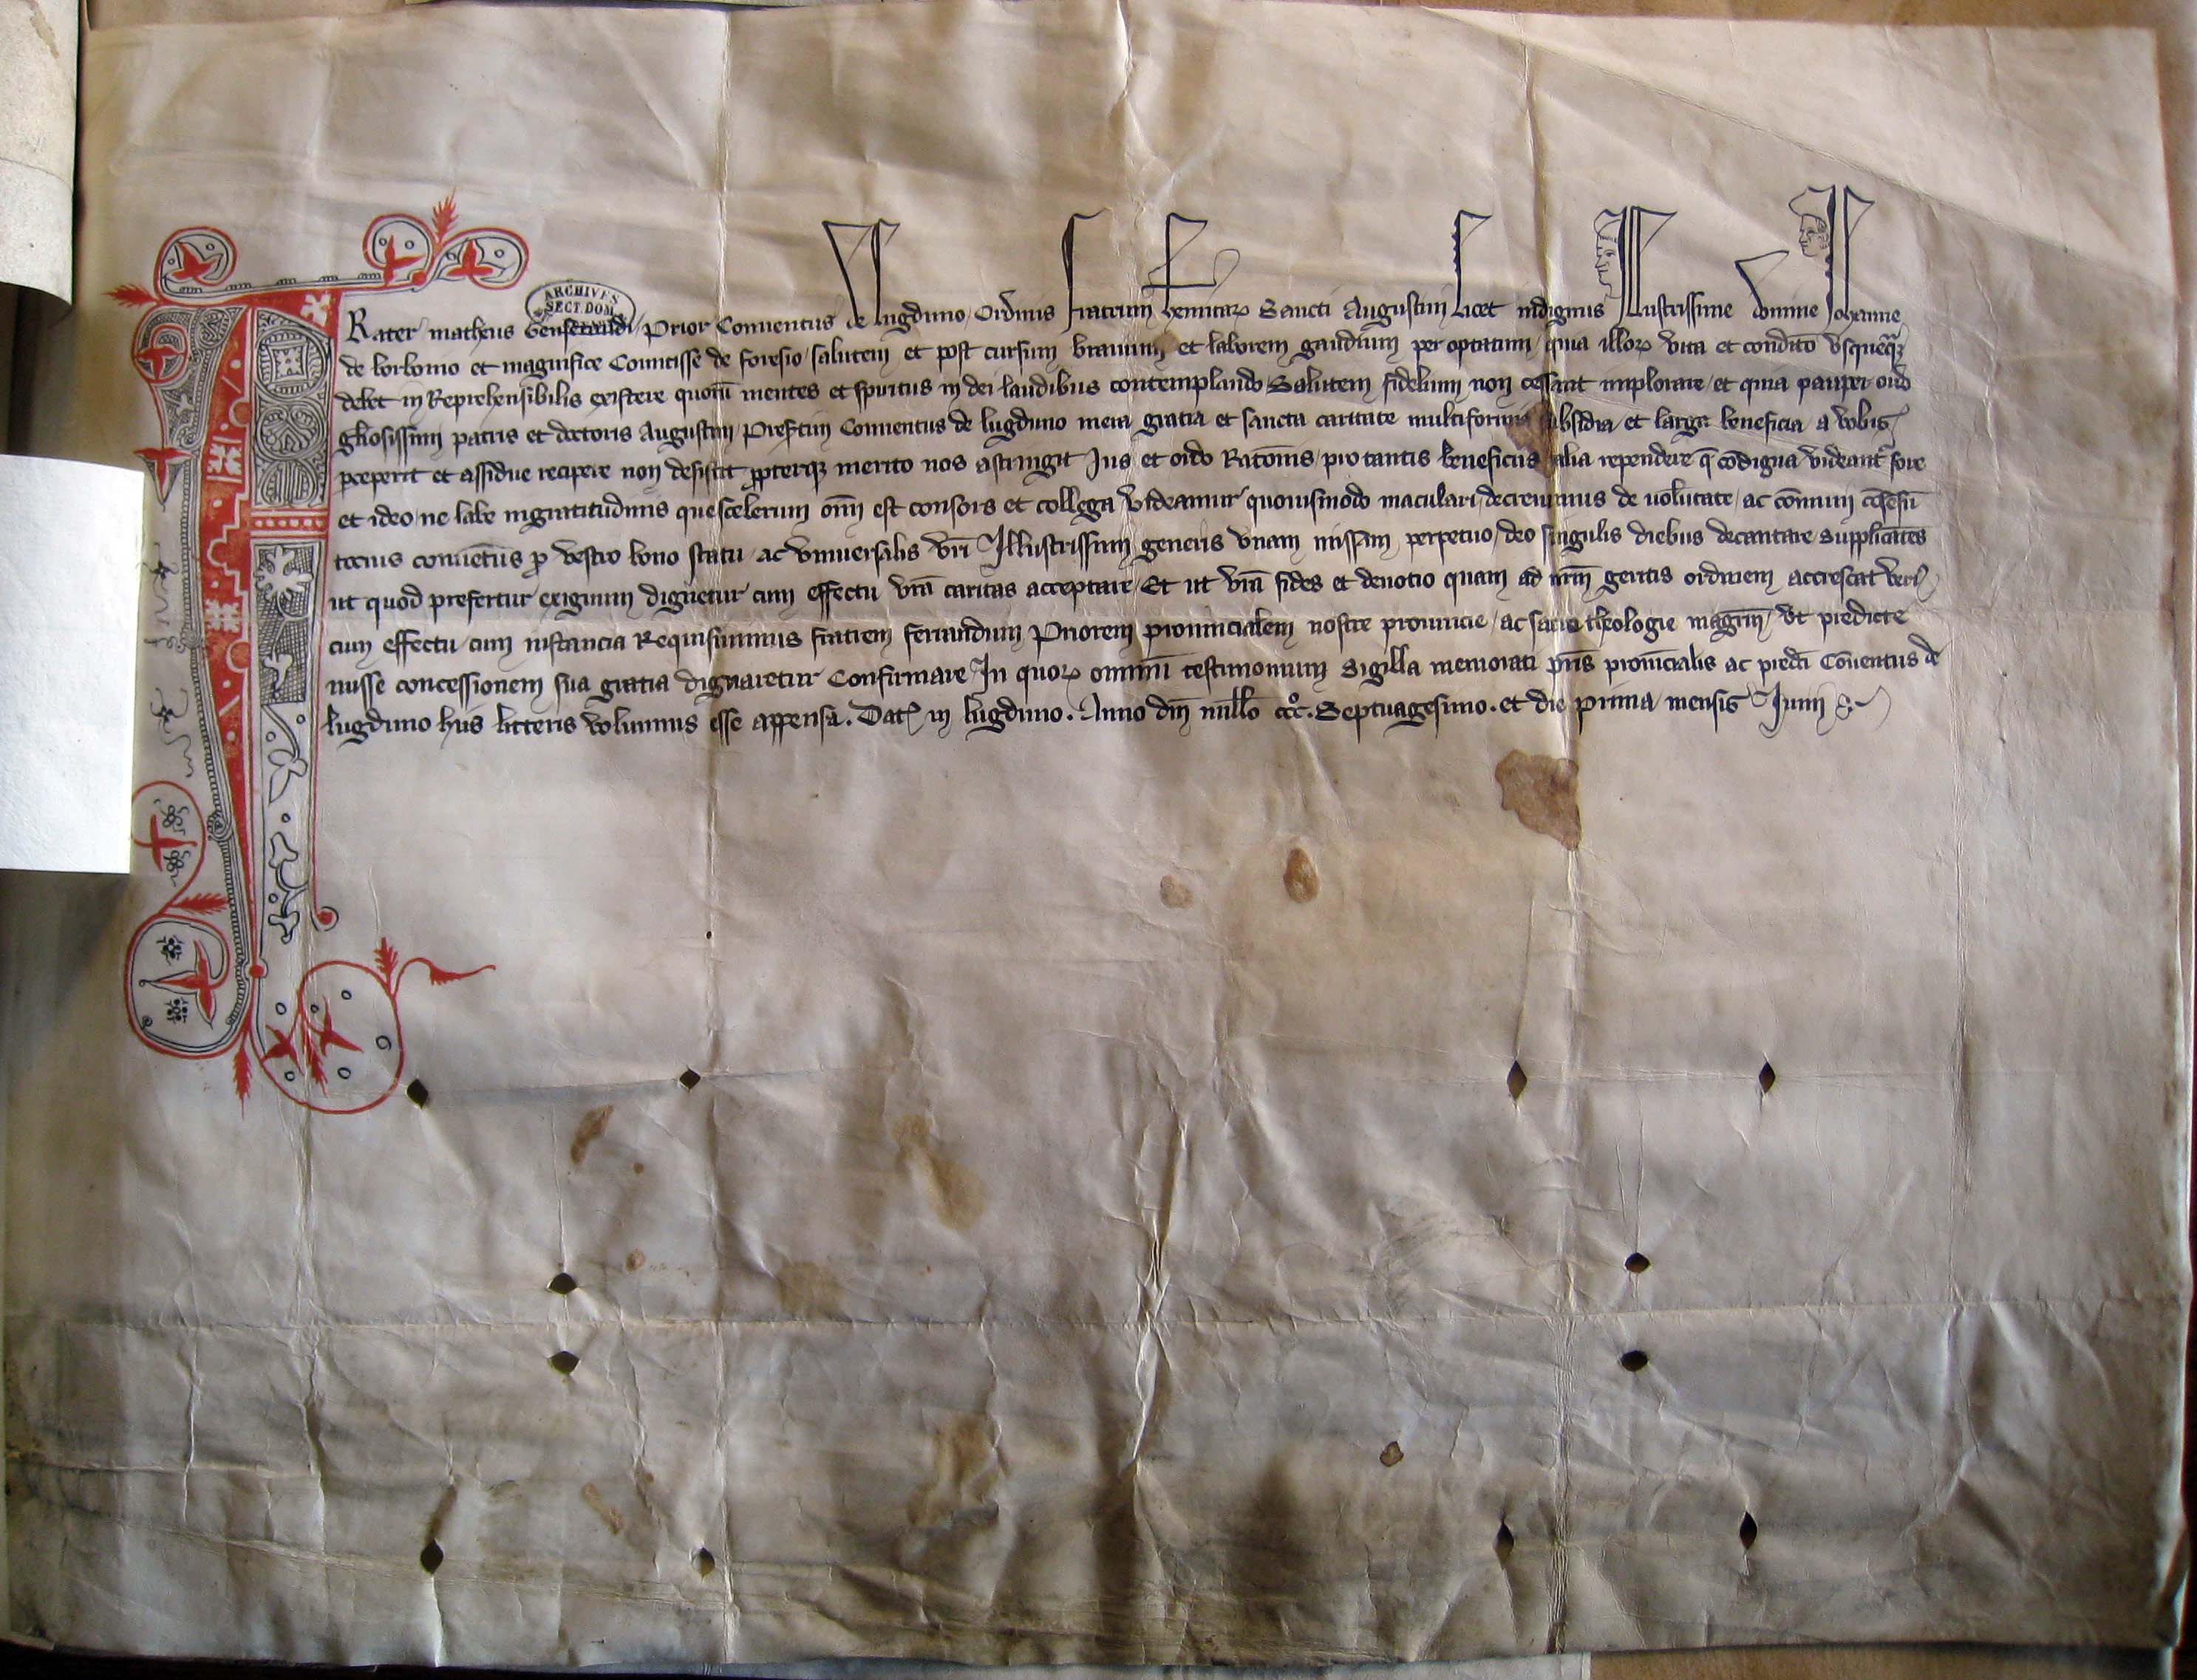 FRater matheus / Prior Conuentus de Lugduno / Ordinis Fratrum heremitarꝝ Sancti Augustini licet indignus Illustrissime domine Iohanne
ARCHIVES
SECT. DOM.
de borbonio et magnifice Comitisse de foresio / salutem et post cursum brauium et laborem gaudium per optatum / quia illorꝝ vita et condito vsquequaqꝫ
debet in Reprehensibilis existere quorū mentes et spiritus in dei laudibus contemplando Salutem fidelium non cessant implorare / et quia pauper ordo
głiosissimi patris et doctoris Augustini / Presertim Conuentus de lugduno mera gratia et sancta caritate multiformia subsidia / et larga beneficia a vobis
peperit et assidue recipere non desistit ꝓpterqꝫ merito nos astringit Ius et ordo Ratōnis / pro tantis beneficiis talia rependere q̄ cōdigna videant̄ fore
et ideo / ne labe ingratitudinis que scelerum oīm est consors et collega videamur quouismodo maculari / decreuimus de volūtate / ac cōmuni cōsensu
tocius conuētus ꝓ vestro bono statu / ac vniuersalis vr̄i Illustrissimi generis vnam missam perpetuo / deo singulis diebus decantare Supplicātes
ut quod prefertur exiguum dignetur cum effectu vr̄a caritas acceptare / Et ut vr̄a fides et deuotio quam ad nr̄m geritis ordinem accrescat
cum effectu / cum instancia Requisiuimus fratrem ferrandum Priorem prouincialem nostre prouincie / ac sacre theologie magrm̄ / vt predicte
misse concessionem sua gratia dignaretur Confirmare In quorꝝ omniū testimonium Sigilla memorati pr̄is prouīcialis ac predc̄i Cōuentus de
lugduno hiis litteris volumus esse appensa. Dat̄ in lugduno. Anno dn̄i millo ccc°. Septuagesimo. et die prima mensis Iunii